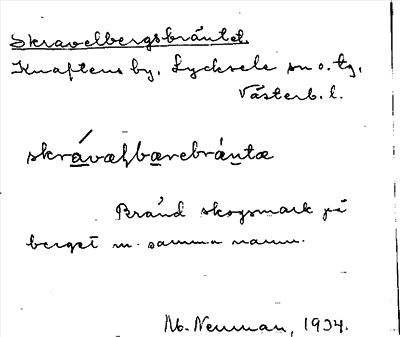 Skravelbergsbräntet.
Knaftens by, Lycksele sn o. tg,
Västerb. l.
skrávæl̥bærebrántæ
Bränd skogsmark på
berget m. samma namn.
M. Neuman, 1934.